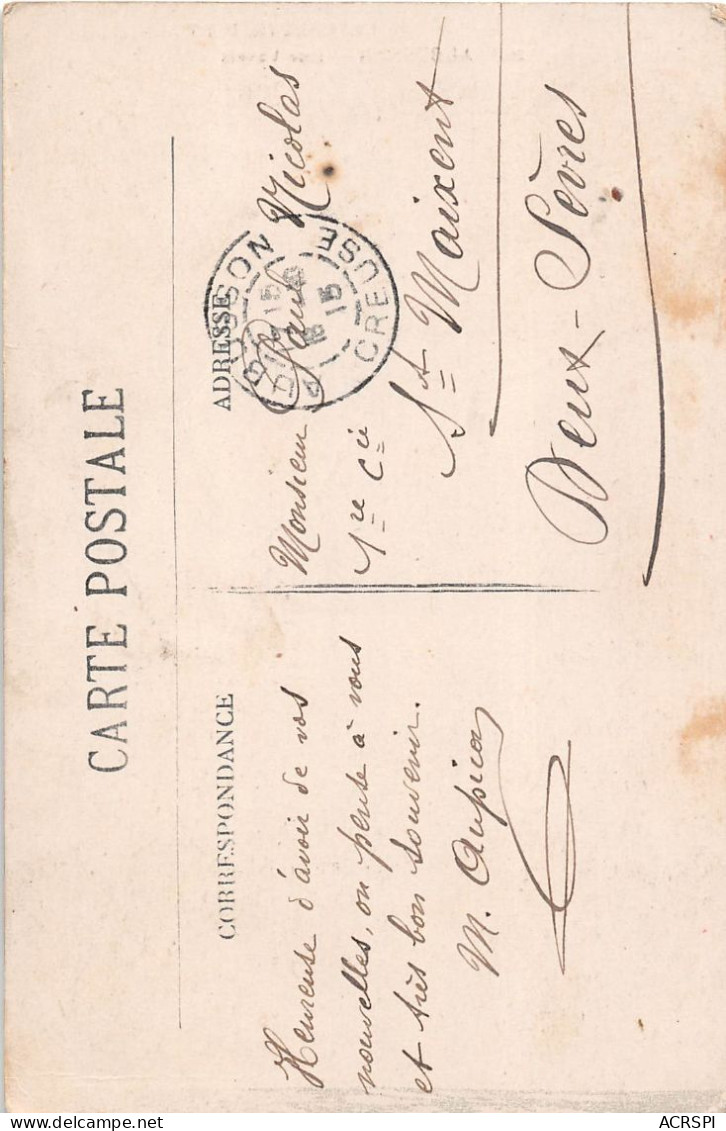 CARTE POSTALE
CORRESPONDANCE
Heureuse d'avoir de vos
nouvelles, on pense à vous
et très bon souvenir.
M.
ADRESSE
Monsieur Paul Nicolas
1re Cie
St Maixent
Deux-Sèvres
AUBUSSON
15
15
CREUSE
delcampe.net
ACRSPI